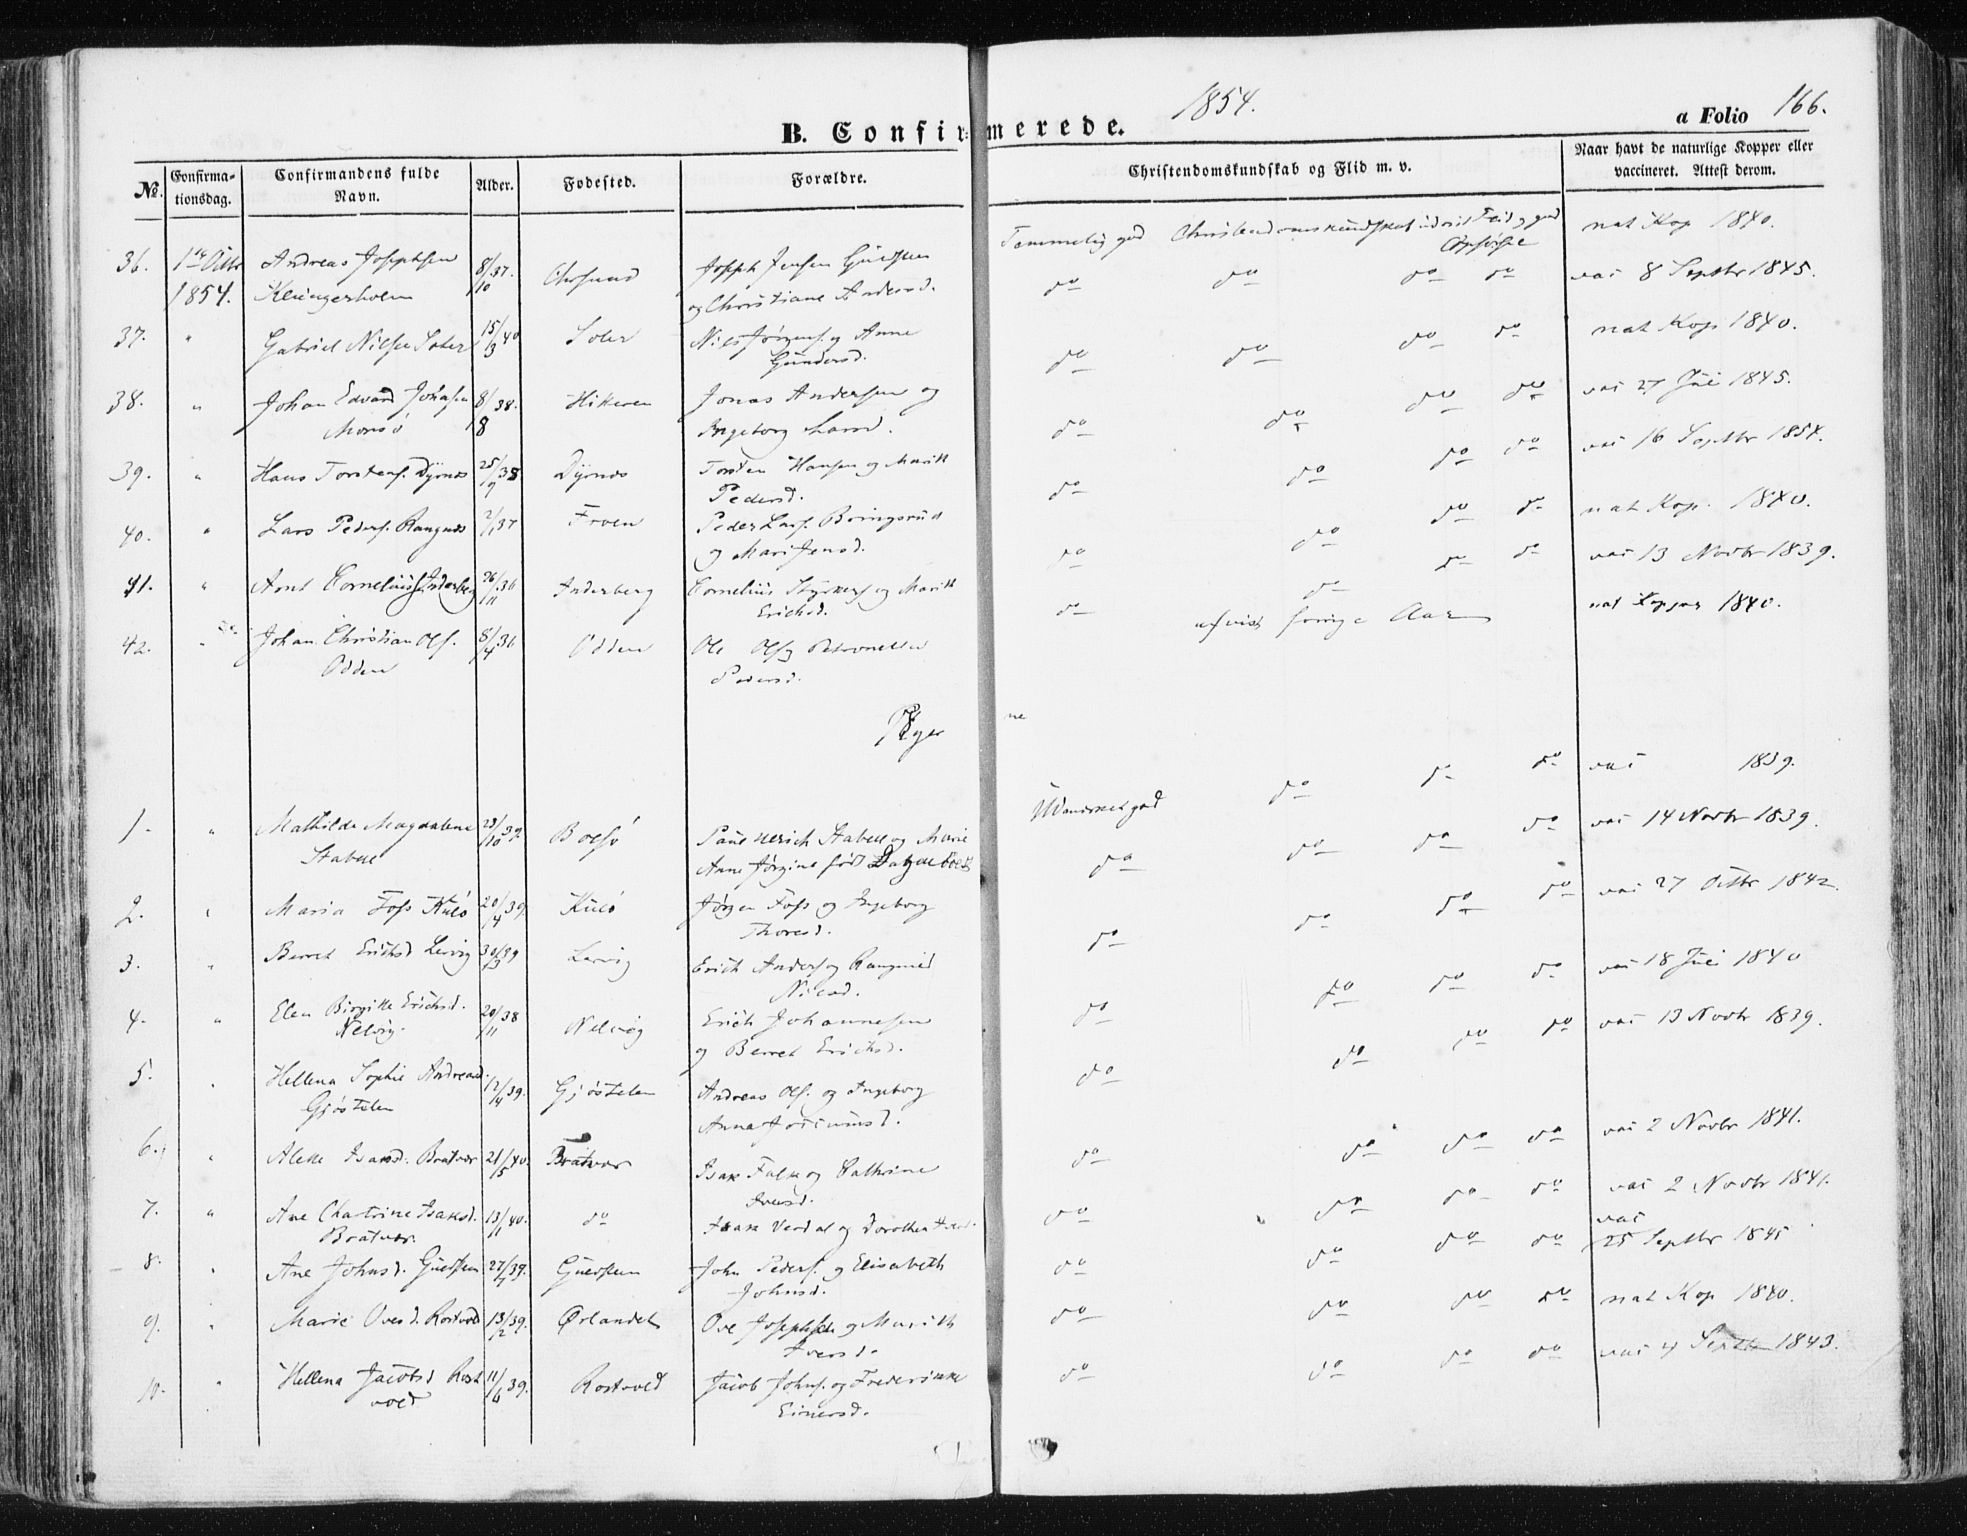 1854.
B. Confirmerede.
a Folio 166.
No. Confirmationsdag. Confirmandens fulde Navn. Alder. Fødested. Forældre. Christendomskundskab og Flid m. v. Naar havt de naturlige Kopper eller vaccineret. Attest derom.
36. 1ste Octbr Andreas Josephsen 8/10 37. Joseph Jensen Temmelig god Christendomskundskab udvist Flid og god Opførsel nat Kop 1840.
1854. Klingerholm og Christiane Andersd.
37. " Gabriel Nilsen Soler 15/3 40 Soler Nils Jørgens. og Anne do do do do vac 8 Septbr 1845.
Gundersd.
38. " Johan Edvard Johnsen 8/8 38. Hikeren Jonas Andersen og do do do do nat Kop 1840.
Monsö Ingeborg Larsd.
39. " Hans Torstens. Dyrnes 25/9 38 Dyrnes Torsten Hansen og Marit do do do do vac 27 Juli 1845.
Pedersd.
40. " Lars Peders. Rangnes 2/1 37 Froen Peder Lars. do do do do vac 16 Septbr 1854.
og Mari Jensd.
41. " Arnt Cornelius Inderberg 26/11 36 Inderberg Cornelius Styrkers. og Marit do do do do nat Kop. 1840.
Erichsd.
42. " Johan Christian Ols. 8/4 36 Odden Ole Ols. og Petronelle do do do do vac 13 Novbr 1839.
Odden Pedersd.
do afvist forrige Aar nat Kopper 1840.
Piger ne
1. " Mathilde Magdalene 23/10 39. Bolsö Paul Henrich Stabell og Marie Udmærket god do do do vac 1839.
Stabell Anne Jørgine født
2. " Maria Foss Kulö 20/4 39. Kulö Jørgen Foss og Ingeborg do do do do vac 14 Novbr 1839.
Thoresd.
3. " Berret Erichsd Lervig 30/3 39 Lervig Erich Anders. og Rangnild do do do do vac 27 Octbr 1842.
Nilsd.
4. " Elen Birgitte Erichsd. 20/11 38 Nelvög Erich Johannesen do do do do vac 18 Juli 1840
Nelvig. og Berret Erichsd.
5. " Hellena Sophie Andreasd. 12/4 39. Gjöstelen Andreas Ols. og Ingeborg do do do do vac 13 Novbr 1839.
Gjöstelen Anna
6. " Alette Isaksd. Bratvær 21/5 40. Bratvær Isak Falk og Cathrine do do do do vac 2 Novbr 1841.
Iversd.
7. " Ane Chatrine Isaksd. 13/1 40. do Isak Verdal og Dorothea do do do do vac 2 Novbr 1841.
Bratvær.
8. " Ane Johnsd. 27/1 39. John Peders. og Elisabeth do do do do vac 25 Septbr 1845
Johnsd.
9. " Marie Ovesd. Rostvold 13/2 39. Ørlandet Ove Josephsen og Marith do do do do nat Kop 1840.
Iversd.
10. " Hellena Jacobsd Rost 11/6 39. Rostvold Jacob Johns. og Frederikke do do do do vac 4 Septbr 1843.
vold Einersd.